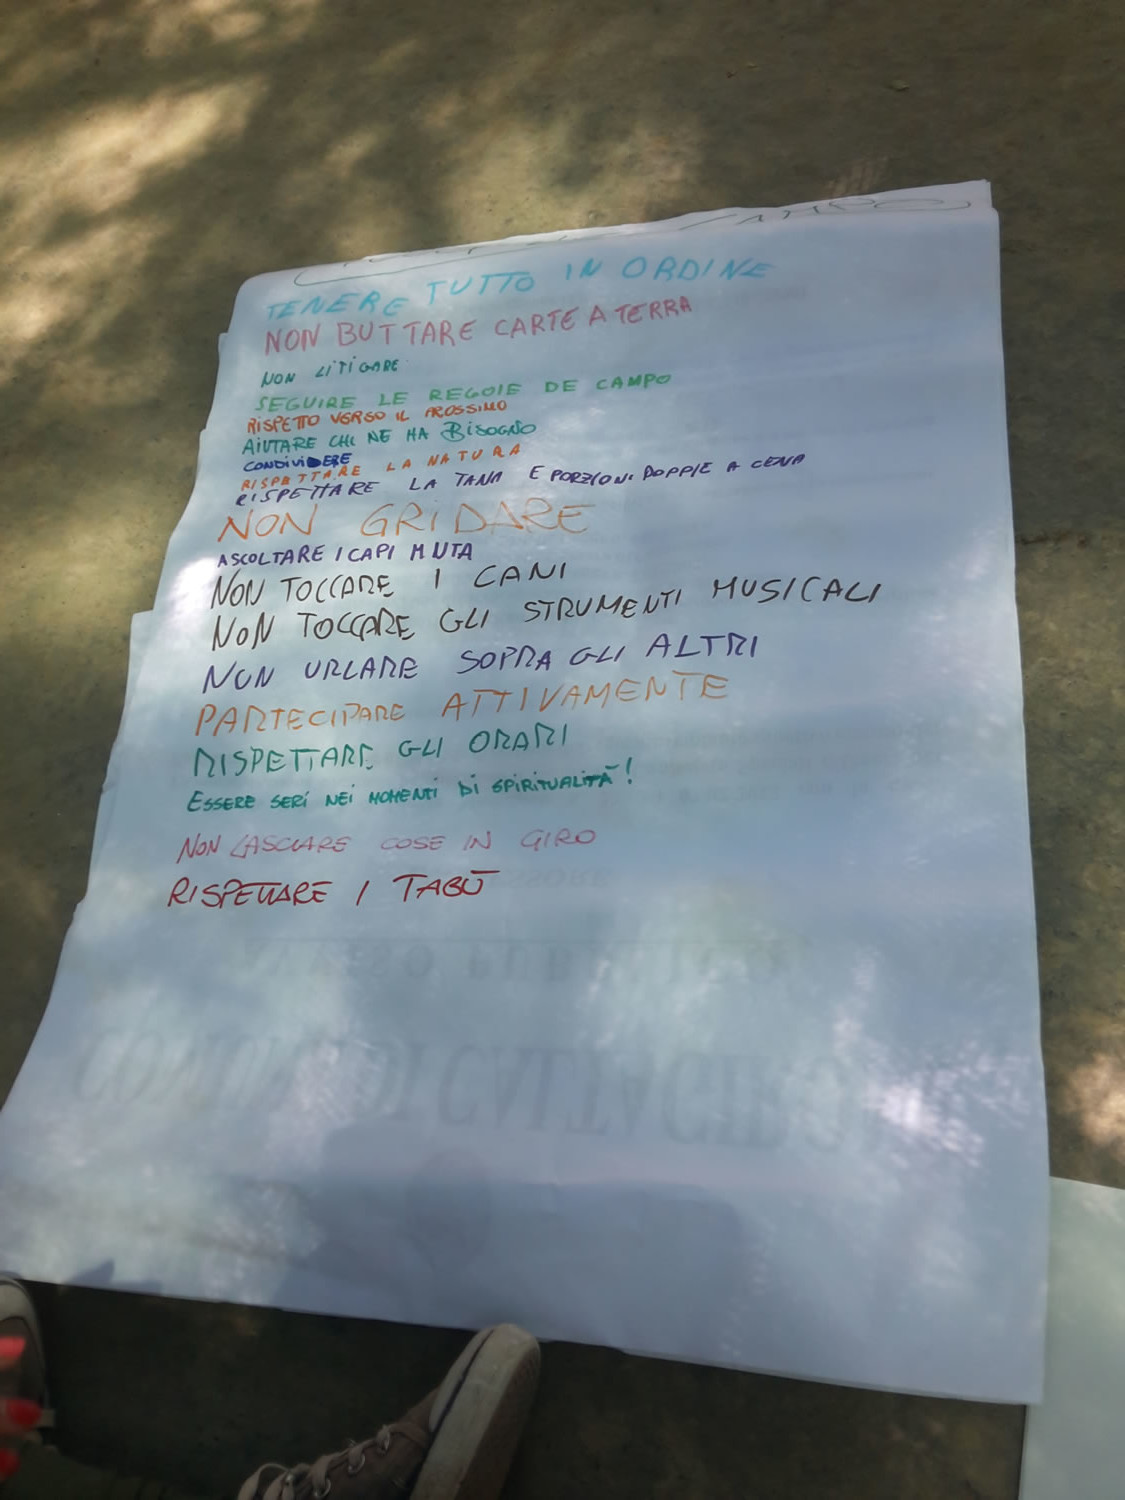 CAMPO
TENERE TUTTO IN ORDINE
NON BUTTARE CARTE A TERRA
NON LITIGARE
SEGUIRE LE REGOLE DE CAMPO
RISPETTO VERSO IL PROSSIMO
AIUTARE CHI NE HA BISOGNO
CONDIVIDERE
RISPETTARE LA NATURA
RISPETTARE LA TANA E PORZIONI DOPPIE A CENA
NON GRIDARE
ASCOLTARE I CAPI MUTA
NON TOCCARE I CANI
NON TOCCARE GLI STRUMENTI MUSICALI
NON URLARE SOPRA GLI ALTRI
PARTECIPARE ATTIVAMENTE
RISPETTARE GLI ORARI
ESSERE SERI NEI MOMENTI DI SPIRITUALITÀ!
NON LASCIARE COSE IN GIRO
RISPETTARE I TABÙ